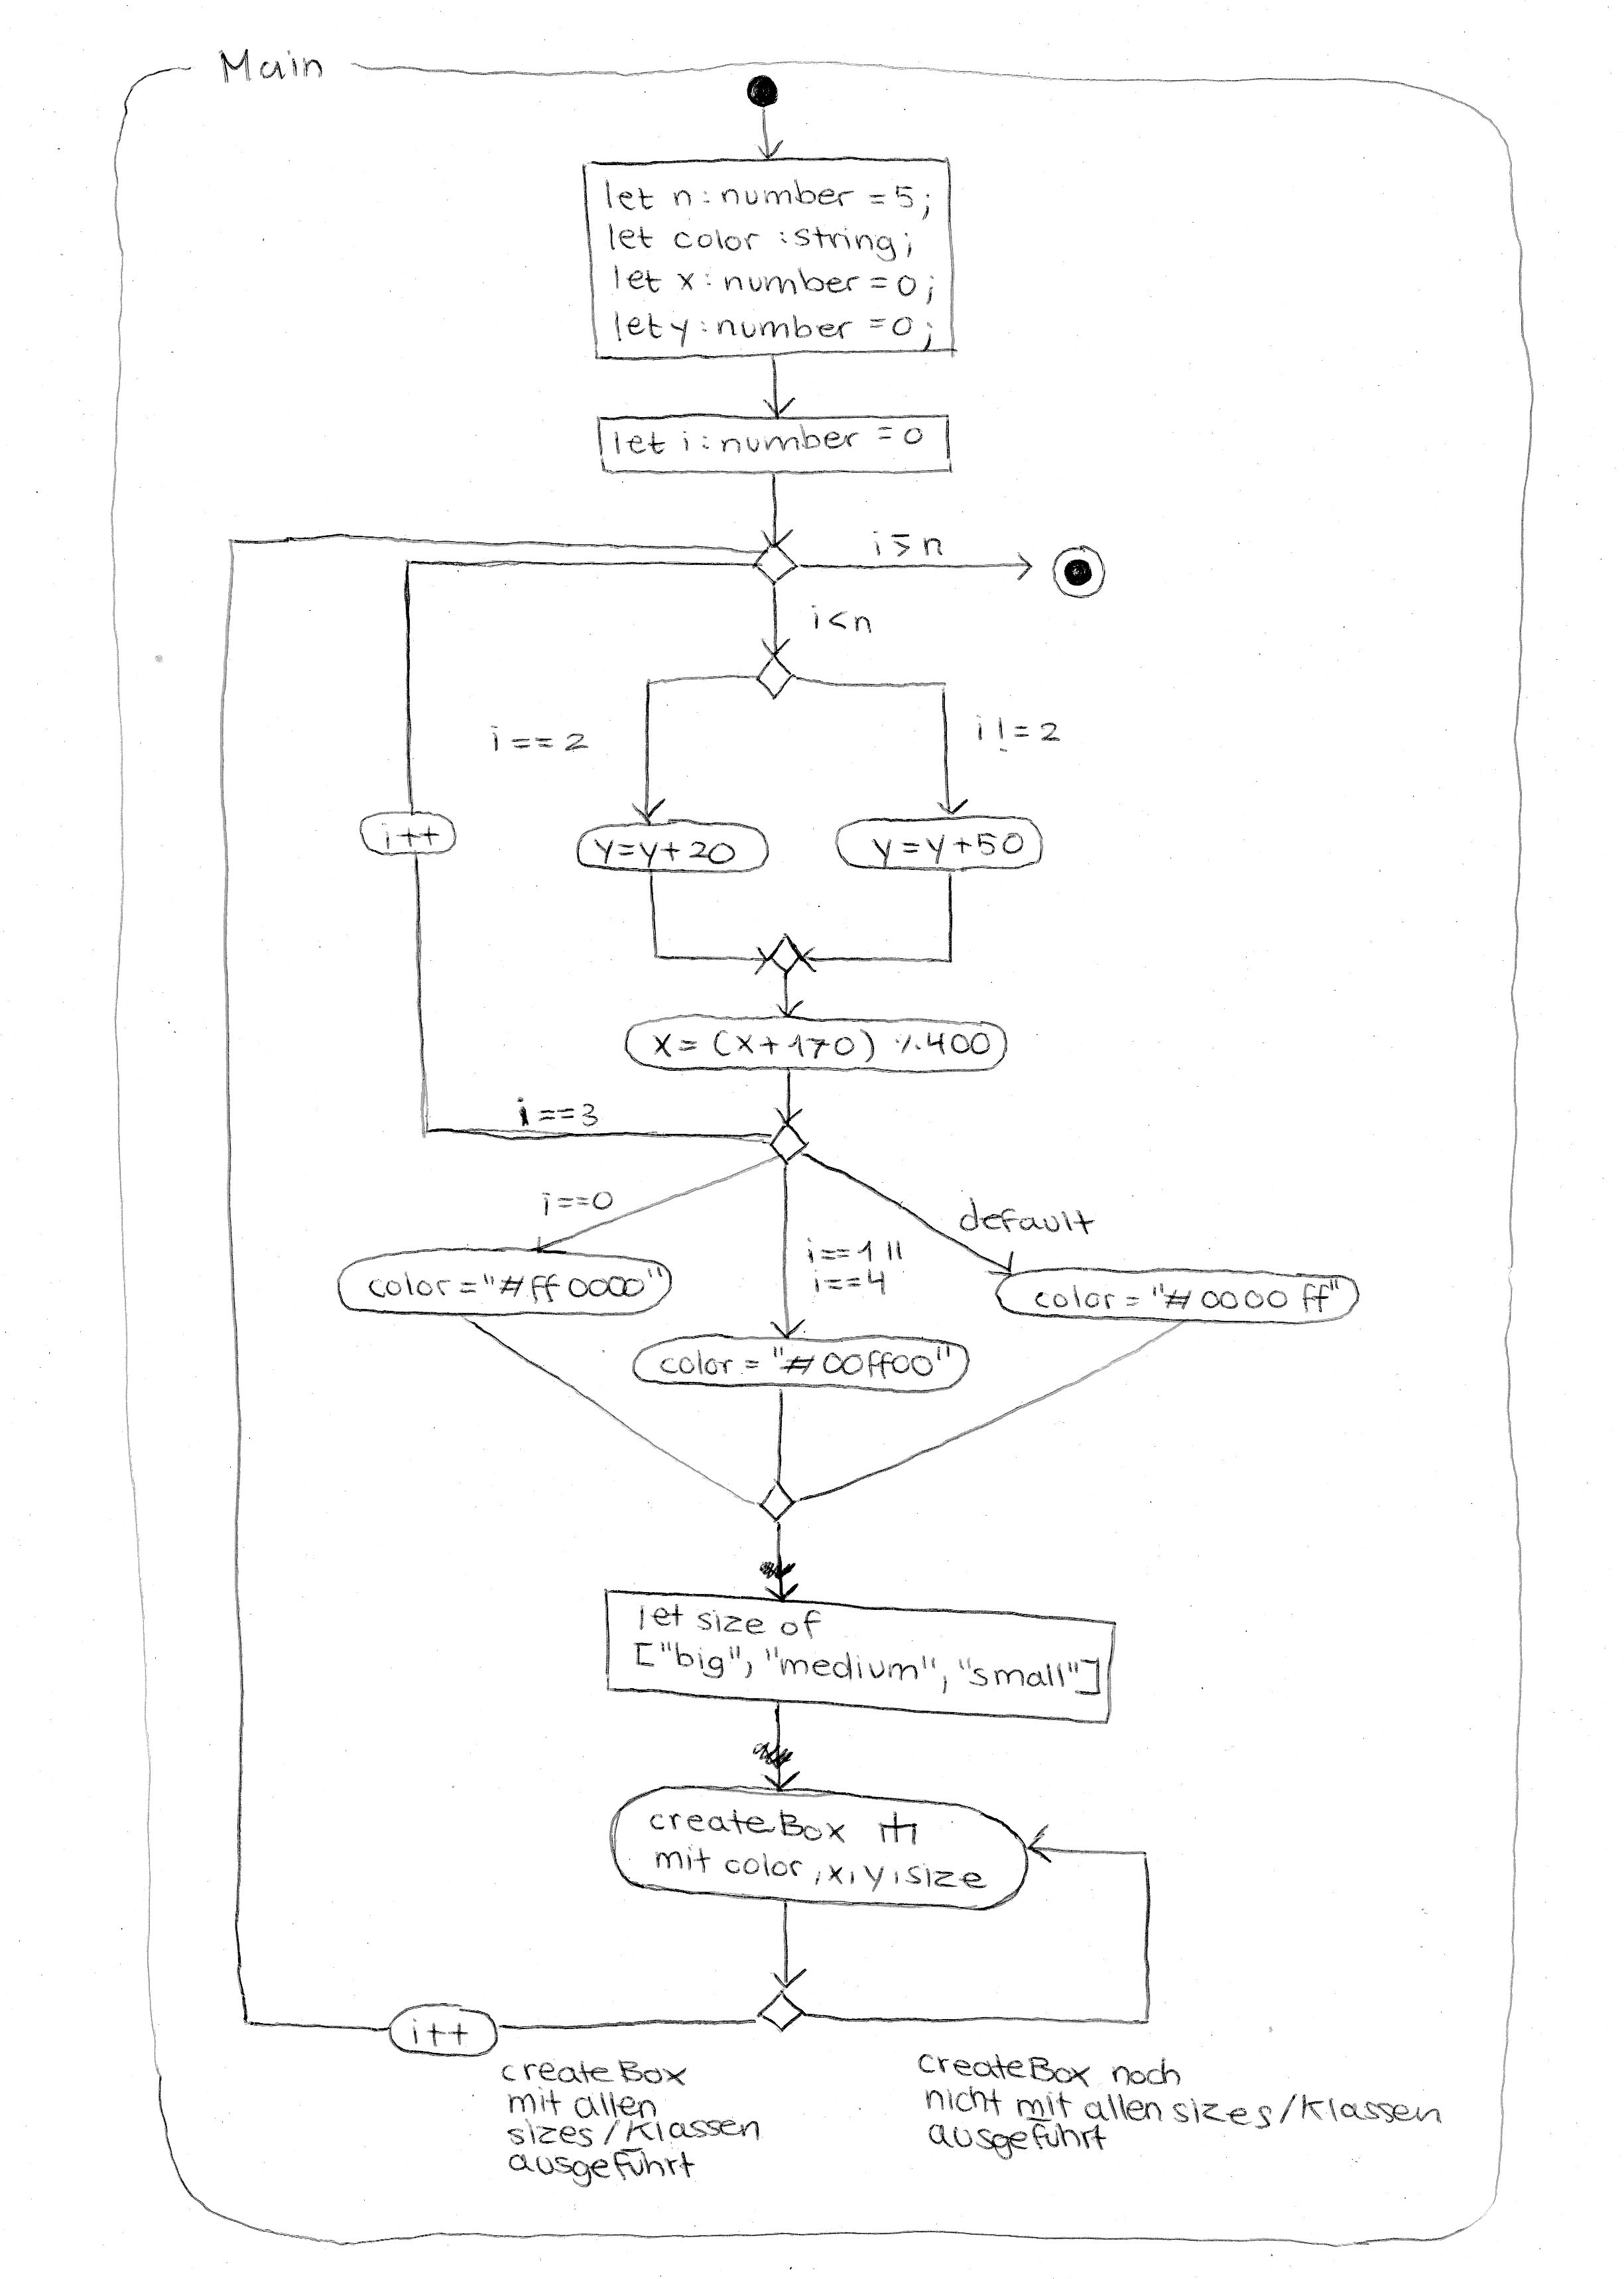 Main
let n:number =5;
let color :string;
let x:number =0;
let y:number =0;
let i:number =0
i≥n
i<n
i==2
i!=2
i++
y=y+20
y=y+50
x=(x+170) %400
i==3
i==0
i==1 ||
i==4
default
color="#ff0000"
color="#0000ff"
color="#00ff00"
let size of
["big", "medium", "small"]
createBox
mit color,x,y,size
i++
createBox
mit allen
sizes/Klassen
ausgeführt
createBox noch
nicht mit allen sizes/Klassen
ausgeführt